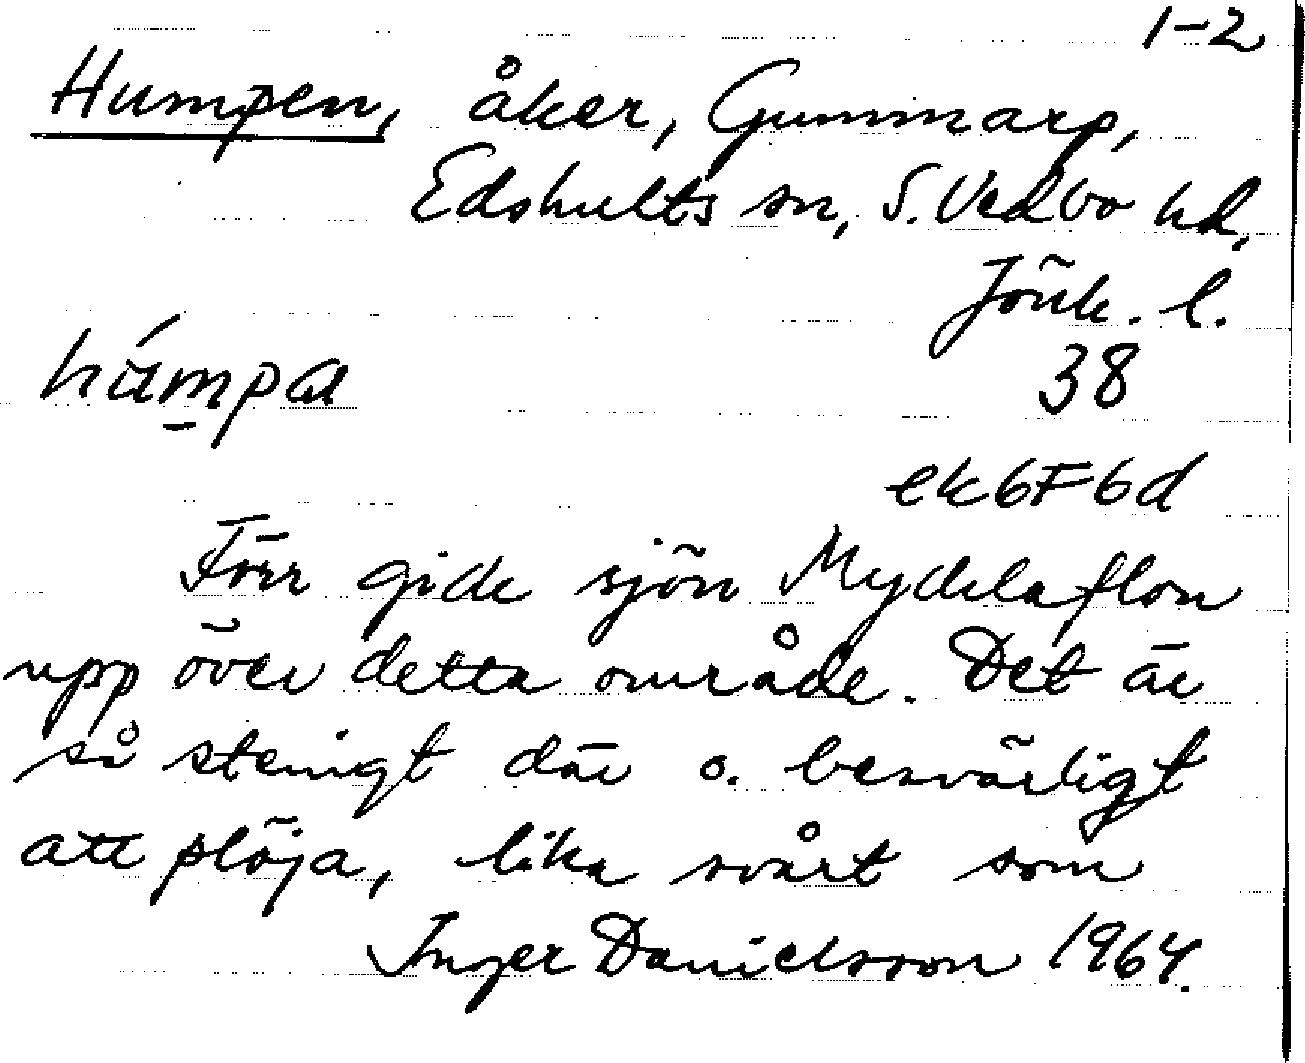 1-2
Humpen, åker, Gummarp,
Edshults sn, S. Vedbo hd,
Jönk. l.
húmpa
38
ek6F6d
Förr gick sjön Mycklaflon
upp över detta område. Det är
så stenigt där o. besvärligt
att plöja, lika svårt som
Inger Danielsson 1964.